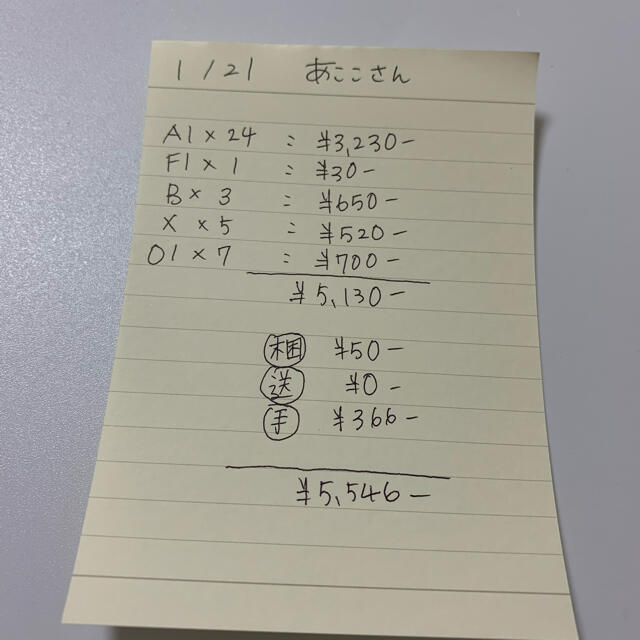 1/21 あここさん
A1×24 : ¥3,230-
F1×1 : ¥30-
B×3 : ¥650-
X×5 : ¥520-
O1×7 : ¥700-
¥5,130-
梱 ¥50-
送 ¥0-
手 ¥366-
¥5,546-